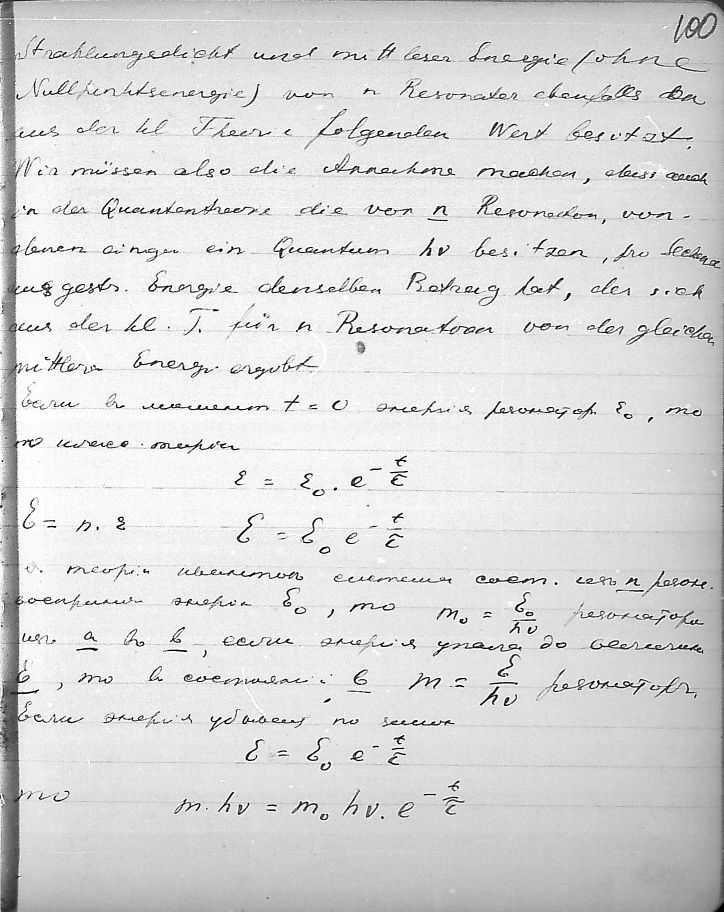 100
Strahlungsdicht und mittlerer Energie (ohne
Nullpunktsenergie) von n Resonator ebenfalls den
aus der kl Theorie folgenden Wert besitzt.
Wir müssen also die Annahme machen, dass auch
in der Quantentheorie die von n Resonatoren, von
denen einige ein Quantum hν besitzen, pro Secunde
ausgestr. Energie denselben Betrag hat, der sich
aus der kl. T. für n Resonatoren von der gleichen
mittlern Energi ergibt.
Если въ моментъ t = 0 энергія резонатор ε₀, то
по класс. теоріи
ε = ε₀. e^{-t/τ}
ℰ = n. ε ℰ = ℰ₀ e^{-t/τ}
теоріи квантовъ система сост. изъ n резон.
энергіи ℰ₀, то m₀ = ℰ₀/hν резонатора
изъ a въ b, если энергія упала до величины
ℰ, то въ состояніи b m = ℰ/hν резонаторъ.
Если энергія убываетъ по
ℰ = ℰ₀ e^{-t/τ}
то m. hν = m₀ hν. e^{-t/τ}